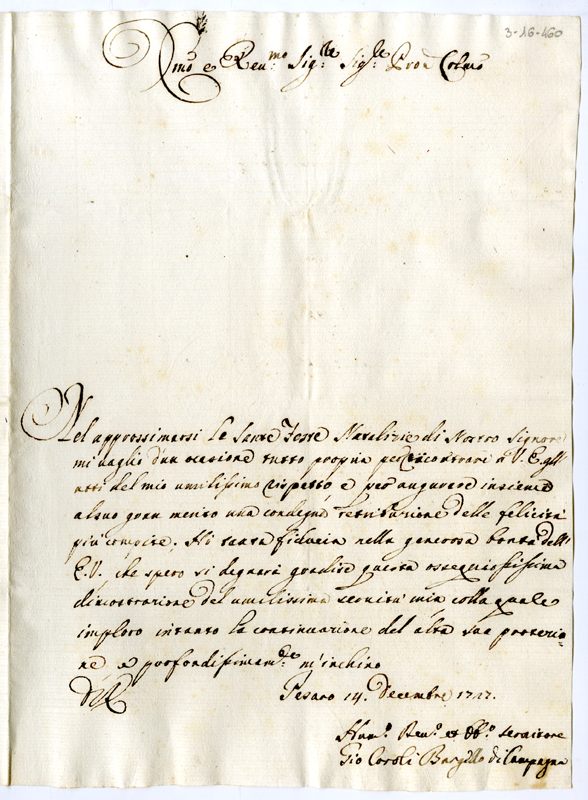 3-16-460
Emo e Reu.mo Sig.re Sig.re Pron Colmo
Nel approssimarsi le Sante Feste Natalizie di Nostro Signore
mi vaglio d'un ocasione tutto propria per ricontrare a V. E. gli
atti del mio umilissimo rispetto e per augurare insieme
al suo gran merito una condegna retribuzione delle felicità
più compite; Hò tanta fiducia nella generosa bontà dell'
E.V. che spero si degnarà gradire questa ossequiosissima
dimostrazione del umilissima seruitù mia colla quale
imploro intanto la continuazione del alta sua protezio-
ne e profondissimam.te m'inchino
D V E
Pesaro 14. Decembre 1727.
Hum.o Deu.o et Obb.o seruitore
Gio Caroli Bargello di Campagna